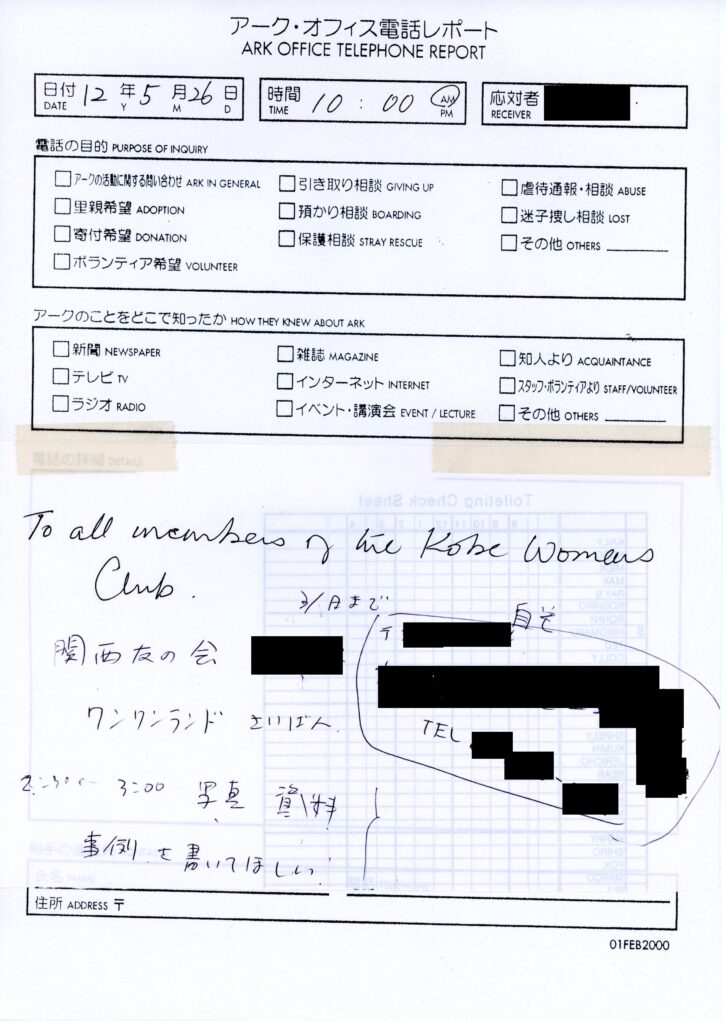 アーク・オフィス電話レポート
ARK OFFICE TELEPHONE REPORT
日付 DATE 12 年 Y 5 月 M 26 日 D
時間 TIME 10 : 00 AM PM
応対者 RECEIVER
電話の目的 PURPOSE OF INQUIRY
□アークの活動に関する問い合わせ ARK IN GENERAL
□里親希望 ADOPTION
□寄付希望 DONATION
□ボランティア希望 VOLUNTEER
□引き取り相談 GIVING UP
□預かり相談 BOARDING
□保護相談 STRAY RESCUE
□虐待通報・相談 ABUSE
□迷子捜し相談 LOST
□その他 OTHERS
アークのことをどこで知ったか HOW THEY KNEW ABOUT ARK
□新聞 NEWSPAPER
□テレビ TV
□ラジオ RADIO
□雑誌 MAGAZINE
□インターネット INTERNET
□イベント・講演会 EVENT / LECTURE
□知人より ACQUAINTANCE
□スタッフ・ボランティアより STAFF/VOLUNTEER
□その他 OTHERS
電話の詳細
Toileting Check Sheet
To all members of the Kobe Womens
Club.
まで
〒
自宅
関西友の会
ワンワンランド さいばん
TEL
3:00 写真 資料
事例を書いてほしい
氏名 NAME
住所 ADDRESS 〒
01FEB2000